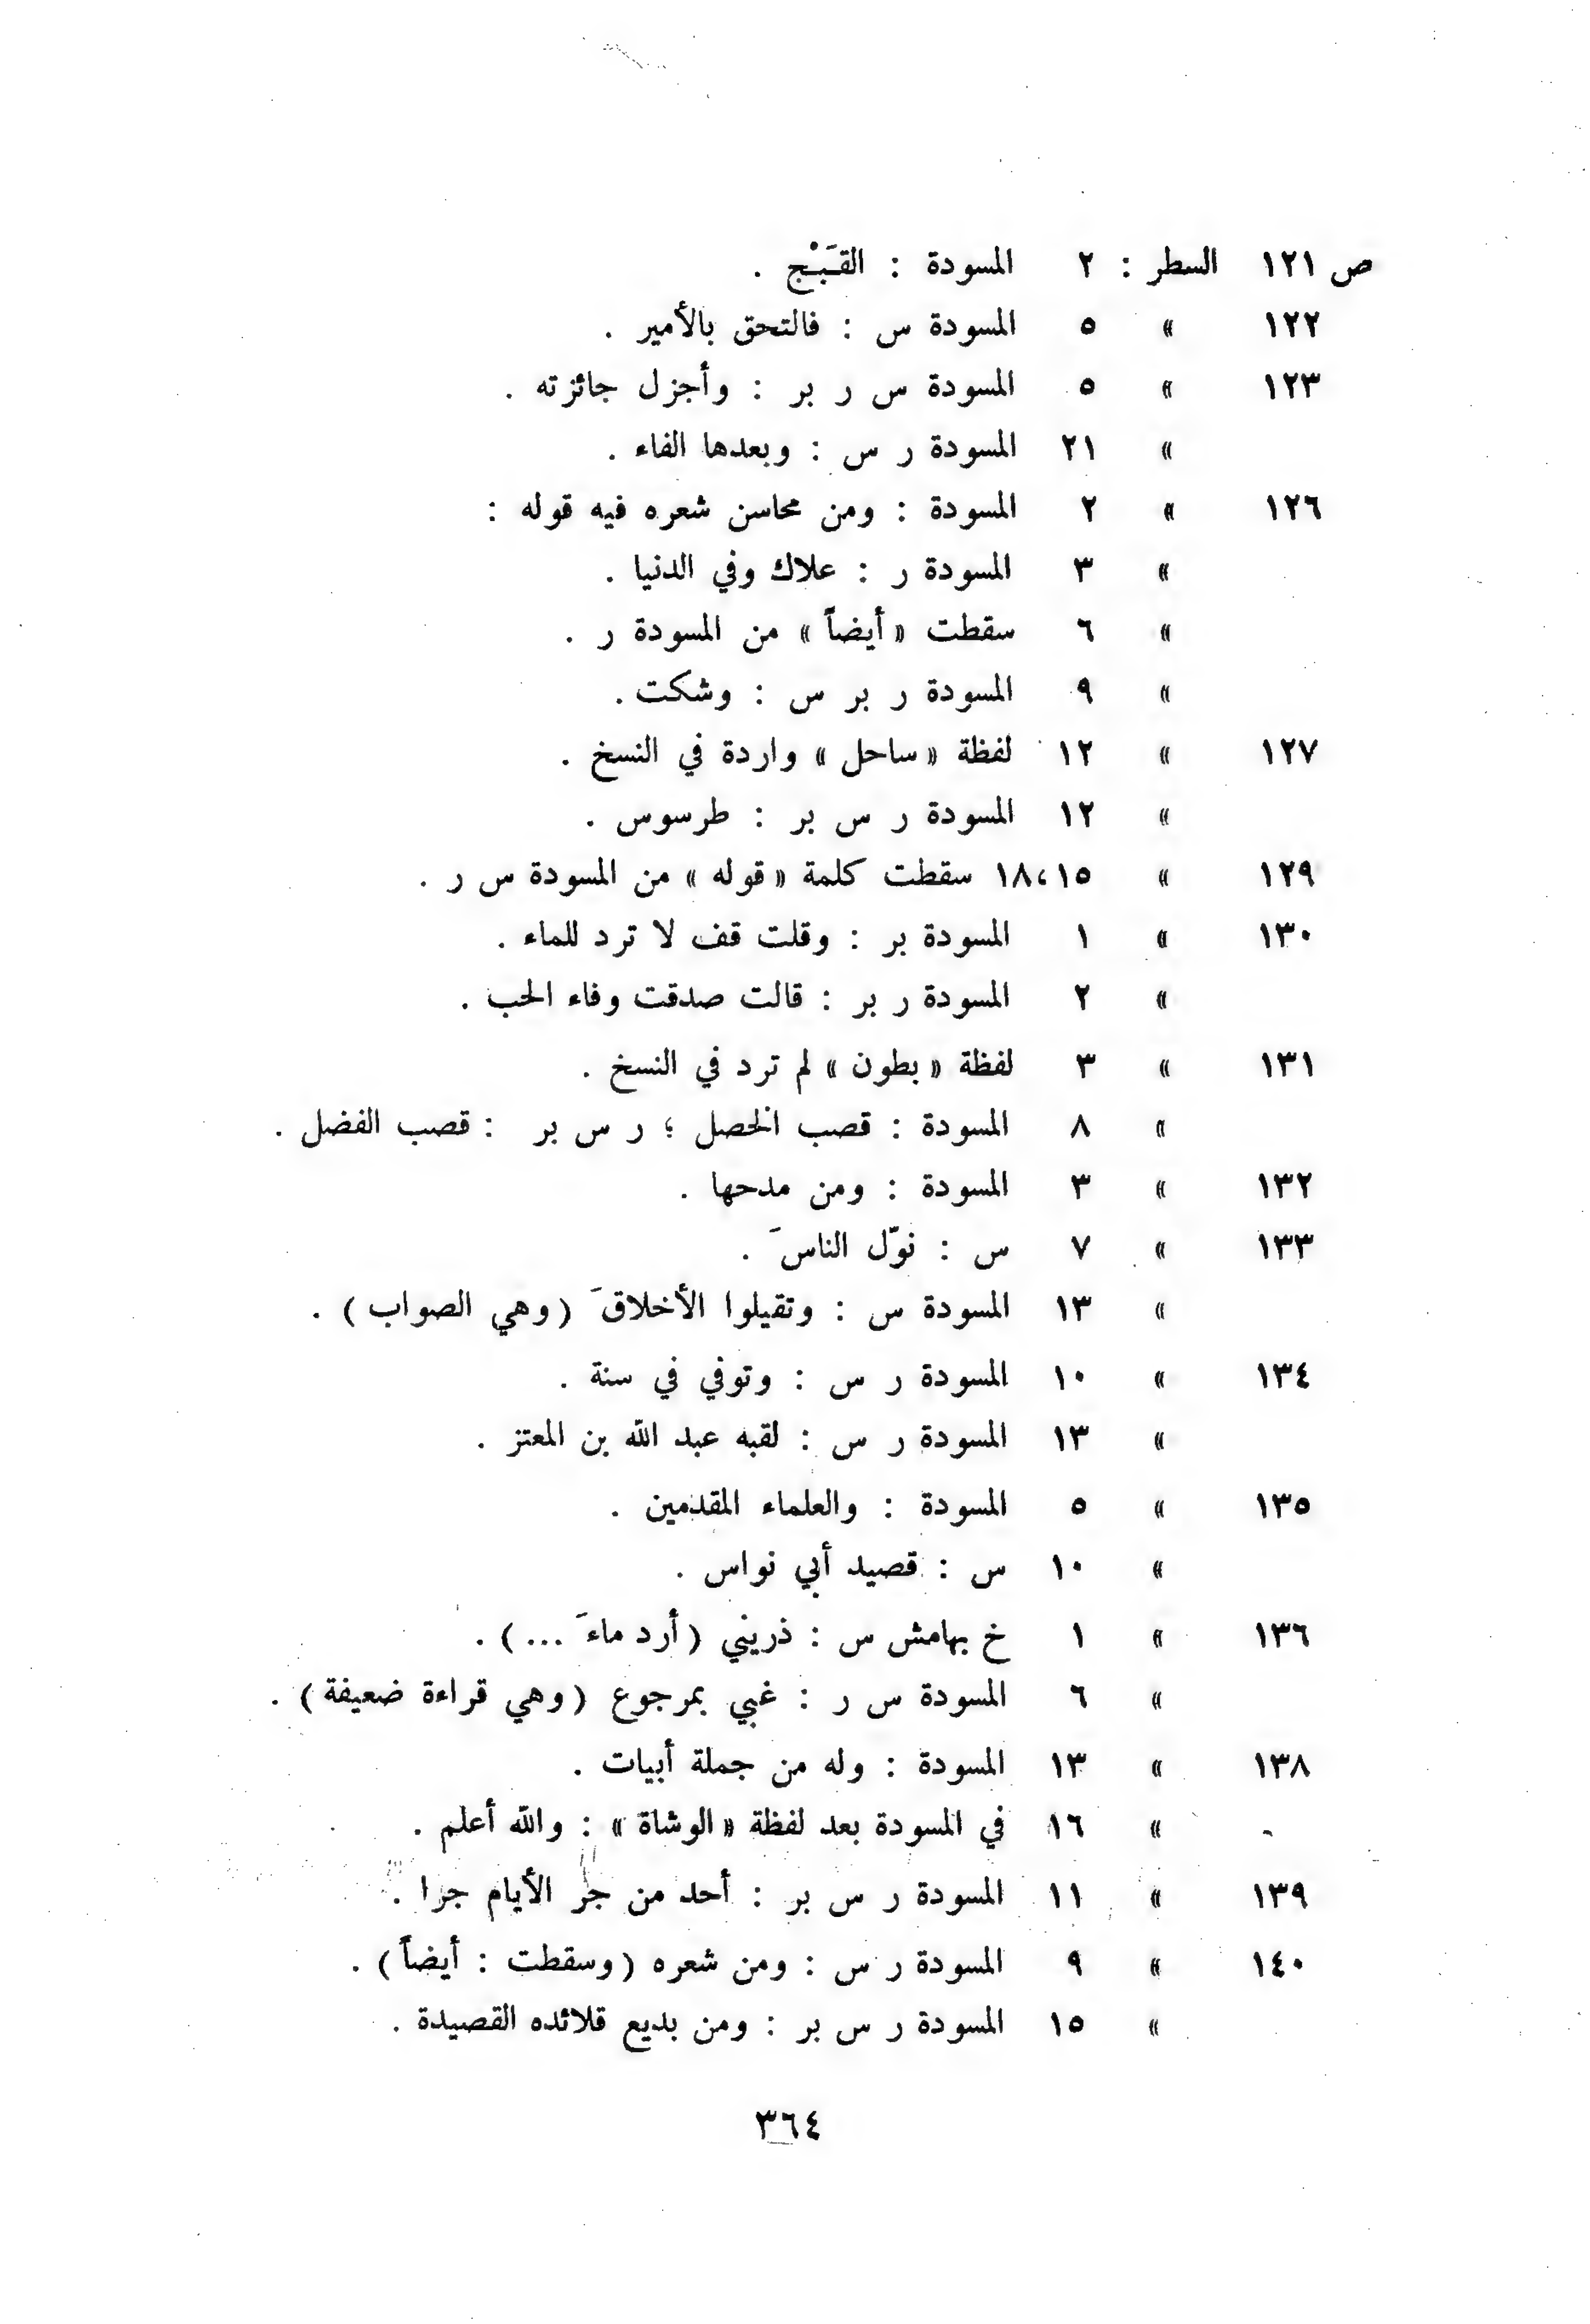 ص ١٢١ السطر : ٢ المسودة : القَبْج .
١٢٢ » ٥ المسودة س : فالتحق بالأمير .
١٢٣ » ٥ المسودة س ر بر : وأجزل جائزته .
» ٢١ المسودة ر س : وبعدها الفاء .
١٢٦ » ٢ المسودة : ومن محاسن شعره فيه قوله :
» ٣ المسودة ر : علاك وفي الدنيا .
» ٦ سقطت « أيضاً » من المسودة ر .
» ٩ المسودة ر بر س : وشكت .
١٢٧ » ١٢ لفظة « ساحل » واردة في النسخ .
» ١٢ المسودة ر س بر : طرسوس .
١٢٩ » ١٥،١٨ سقطت كلمة « قوله » من المسودة س ر .
١٣٠ » ١ المسودة بر : وقلت قف لا ترد للماء .
» ٢ المسودة ر بر : قالت صدقت وفاء الحب .
١٣١ » ٣ لفظة « بطون » لم ترد في النسخ .
» ٨ المسودة : قصب الخصل ؛ ر س بر : قصب الفضل .
١٣٢ » ٣ المسودة : ومن مدحها .
١٣٣ » ٧ س : نوّل الناسَ .
» ١٣ المسودة س : وتقيلوا الأخلاقَ ( وهي الصواب ) .
١٣٤ » ١٠ المسودة ر س : وتوفي في سنة .
» ١٣ المسودة ر س : لقبه عبد الله بن المعتز .
١٣٥ » ٥ المسودة : والعلماء المقدمين .
» ١٠ س : قصيد أبي نواس .
١٣٦ » ١ خ بهامش س : ذريني ( أرد ماءَ ... ) .
» ٦ المسودة س ر : غبي بمرجوع ( وهي قراءة ضعيفة ) .
١٣٨ » ١٣ المسودة : وله من جملة أبيات .
» ١٦ في المسودة بعد لفظة « الوشاة » : والله أعلم .
١٣٩ » ١١ المسودة ر س بر : أحد من جر الأيام جرا .
١٤٠ » ٩ المسودة ر س : ومن شعره ( وسقطت : أيضاً ) .
» ١٥ المسودة ر س بر : ومن بديع قلائده القصيدة .
٣٦٤